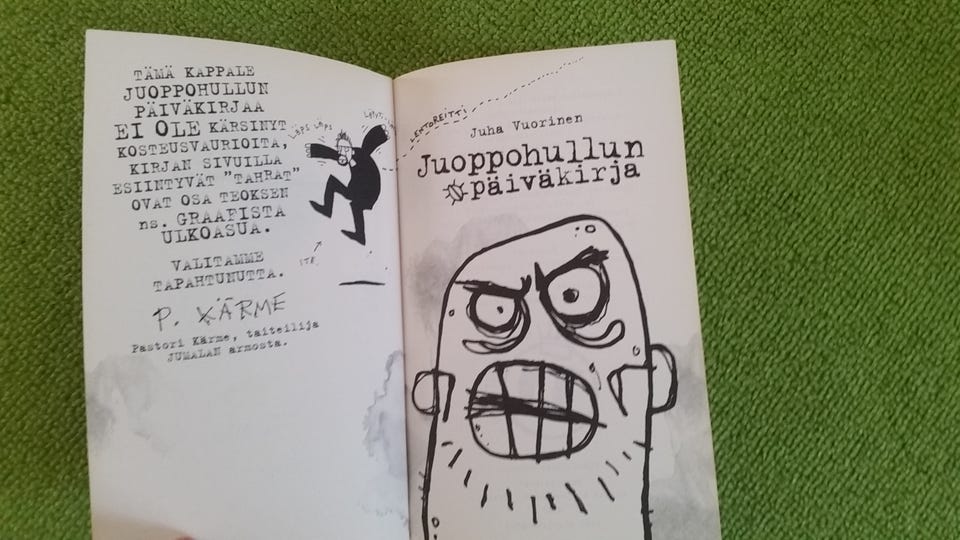 TÄMÄ KAPPALE
JUOPPOHULLUN
PÄIVÄKIRJAA
EI OLE KÄRSINYT
KOSTEUSVAURIOITA,
KIRJAN SIVUILLA
ESIINTYVÄT "TAHRAT"
OVAT OSA TEOKSEN
ns. GRAAFISTA
ULKOASUA.
VALITAMME
TAPAHTUNUTTA.
P. KÄRME
Pastori Kärme, taiteilija
JUMALAN armosta.
LÄPS LÄPS
ITE
LENTOREITTI
Juha Vuorinen
Juoppohullun
päiväkirja